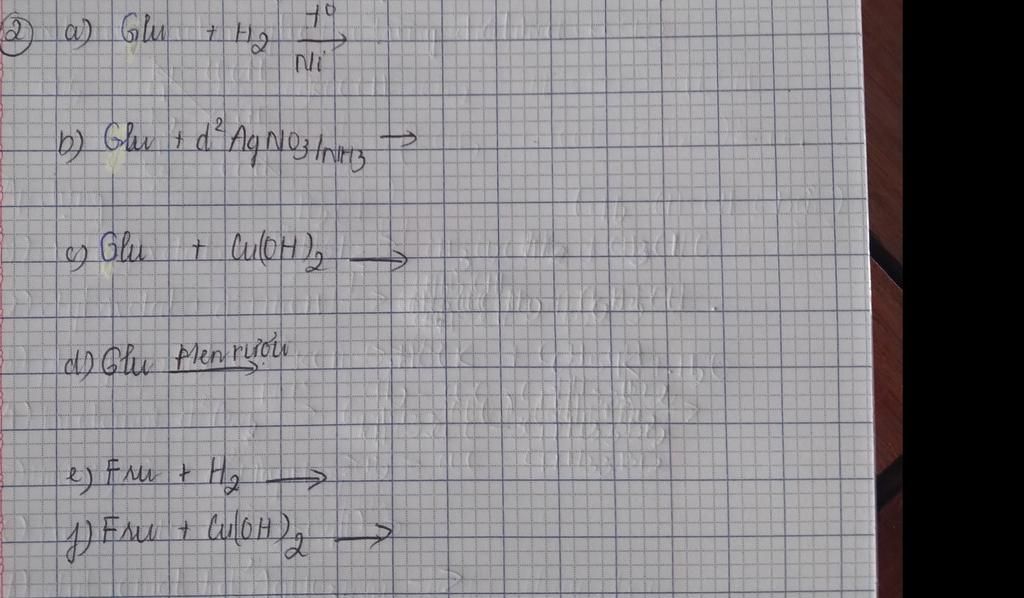 ② a) Glu + H2 t° Ni →
b) Glu + d² AgNO3/NH3 →
c) Glu + Cu(OH)2 →
d) Glu men rượu →
e) Fru + H2 →
f) Fru + Cu(OH)2 →